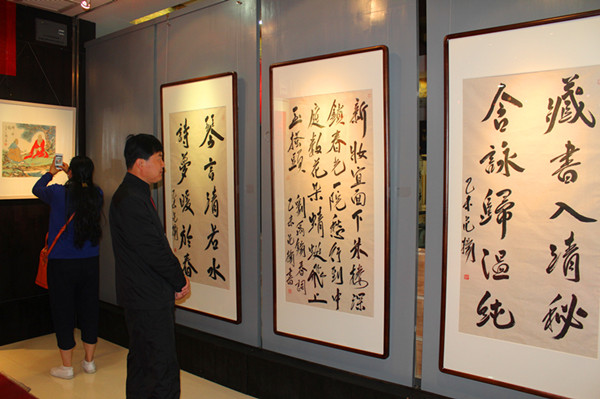 藏書入清秘
含詠歸溫純
乙未
新妝宜面下朱樓深
鎖春光一院愁行到中
庭數花朵蜻蜓飛上
玉搔頭 劉禹錫春詞
乙未 書
琴言清若水
詩夢暖於春
乙未